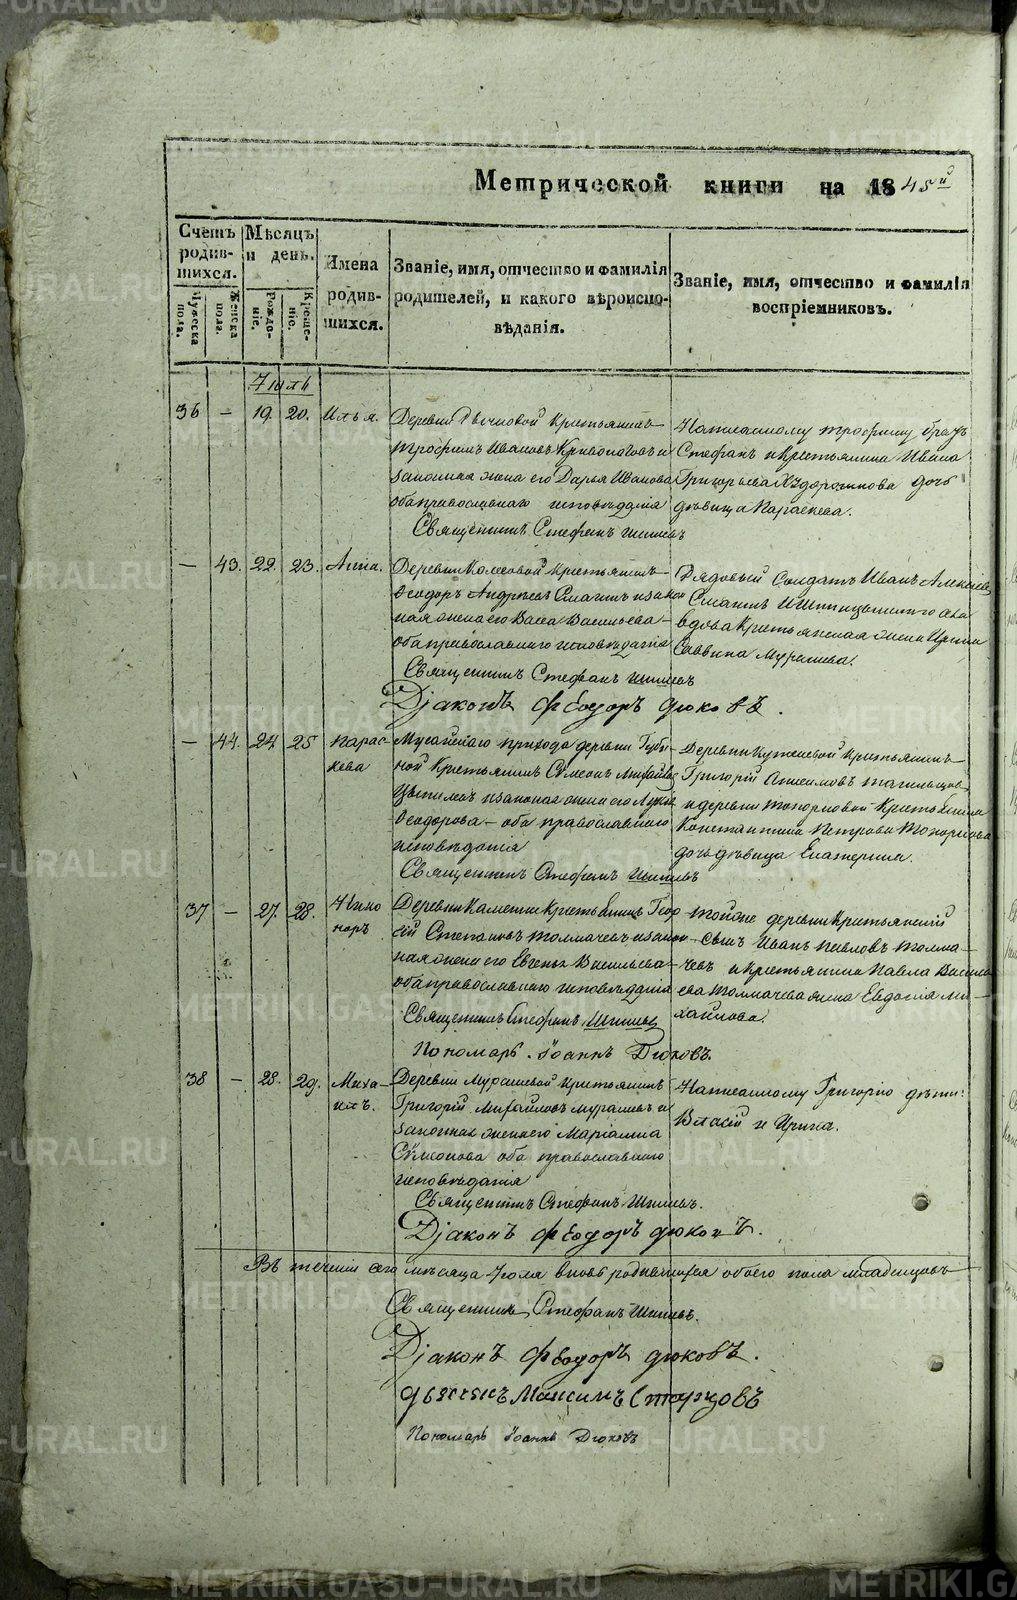 Метрической книги на 1845й
Счетъ родив-шихся.
Мѣсяцъ и день.
Имена родив-шихся.
Званіе, имя, отчество и фамилія родителей, и какого вѣроиспо-вѣданія.
Званіе, имя, отчество и фамилія воспріемниковъ.
Мужеска пола.
Женска пола.
Рожде-ніе.
Креще-ніе.
Іюль
36 — 19. 20. Илья.
Деревни крестьянинъ
Трофимъ Ивановъ Кривоноговъ и
законная жена его Дарья Иванова
оба православнаго исповѣданія
Священникъ Стефанъ
Написанному Трофиму братъ
Стефанъ и крестьянина Ивана
Григорьева дочь
дѣвица Параскева.
— 43. 22. 23. Анна.
Деревни крестьянинъ
Ѳеодоръ Андреевъ Смагинъ и закон
ная жена его Васса Васильева
оба православнаго исповѣданія
Священникъ Стефанъ
Діаконъ Феодоръ Дюковъ.
Рядовый солдатъ Иванъ Алексѣевъ
Смагинъ и
вдова крестьянская жена Ирина
Саввина Мурашева.
— 44. 24 25 Парас-
кева
прихода деревни Губи-
ной крестьянинъ Сѵмеонъ Михайловъ
и законная жена его
Ѳеодорова — оба православнаго
исповѣданія
Священникъ Стефанъ
Деревни крестьянинъ
Григорій
и деревни Топорковой крестьянина
Константина Петрова Топоркова
дочь дѣвица Екатерина.
37 — 27. 28. Нико
норъ
Деревни Каменки крестьянинъ Геор
гій Степановъ Толмачевъ и закон
ная жена его Евгенья Васильева
оба православнаго исповѣданія
Священникъ Стефанъ
Пономарь Іоаннъ Дюковъ.
Тойже деревни крестьянскій
сынъ Иванъ Павловъ Толма-
чевъ и крестьянина Павла Василь
ева Толмачева жена Евдокія Ми-
хайлова.
38 — 28. 29. Миха-
илъ.
Деревни Мурашевой крестьянинъ
Григорій Михайловъ Мурашевъ и
законная жена его Маріамна
Сѵмеонова оба православнаго
исповѣданія
Священникъ Стефанъ
Діаконъ Феодоръ Дюковъ.
Написанному Григорію дѣти:
Власій и Ирина.
Въ теченіи сего мѣсяца Іюля вновь родившихся обоего пола младенцовъ
Священникъ Стефанъ
Діаконъ Феодоръ Дюковъ.
Дьячекъ Максимъ Стерховъ
Пономарь Іоаннъ Дюковъ
METRIKI.GASO-URAL.RU